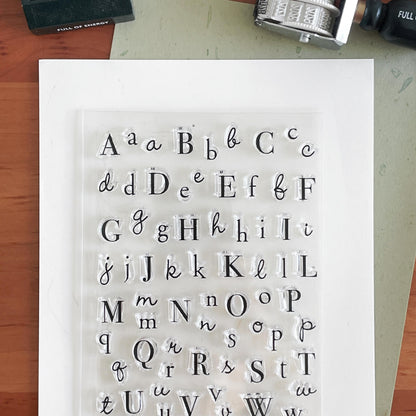 FULL OF ENERGY
FULL OF
A a a B b b C c c
d d D e e E f f F
G g g H h h i I i
j j J k k K l l L
M m m N n n O o o P p
q q Q r r R s s S t T
t U u u V v v W w